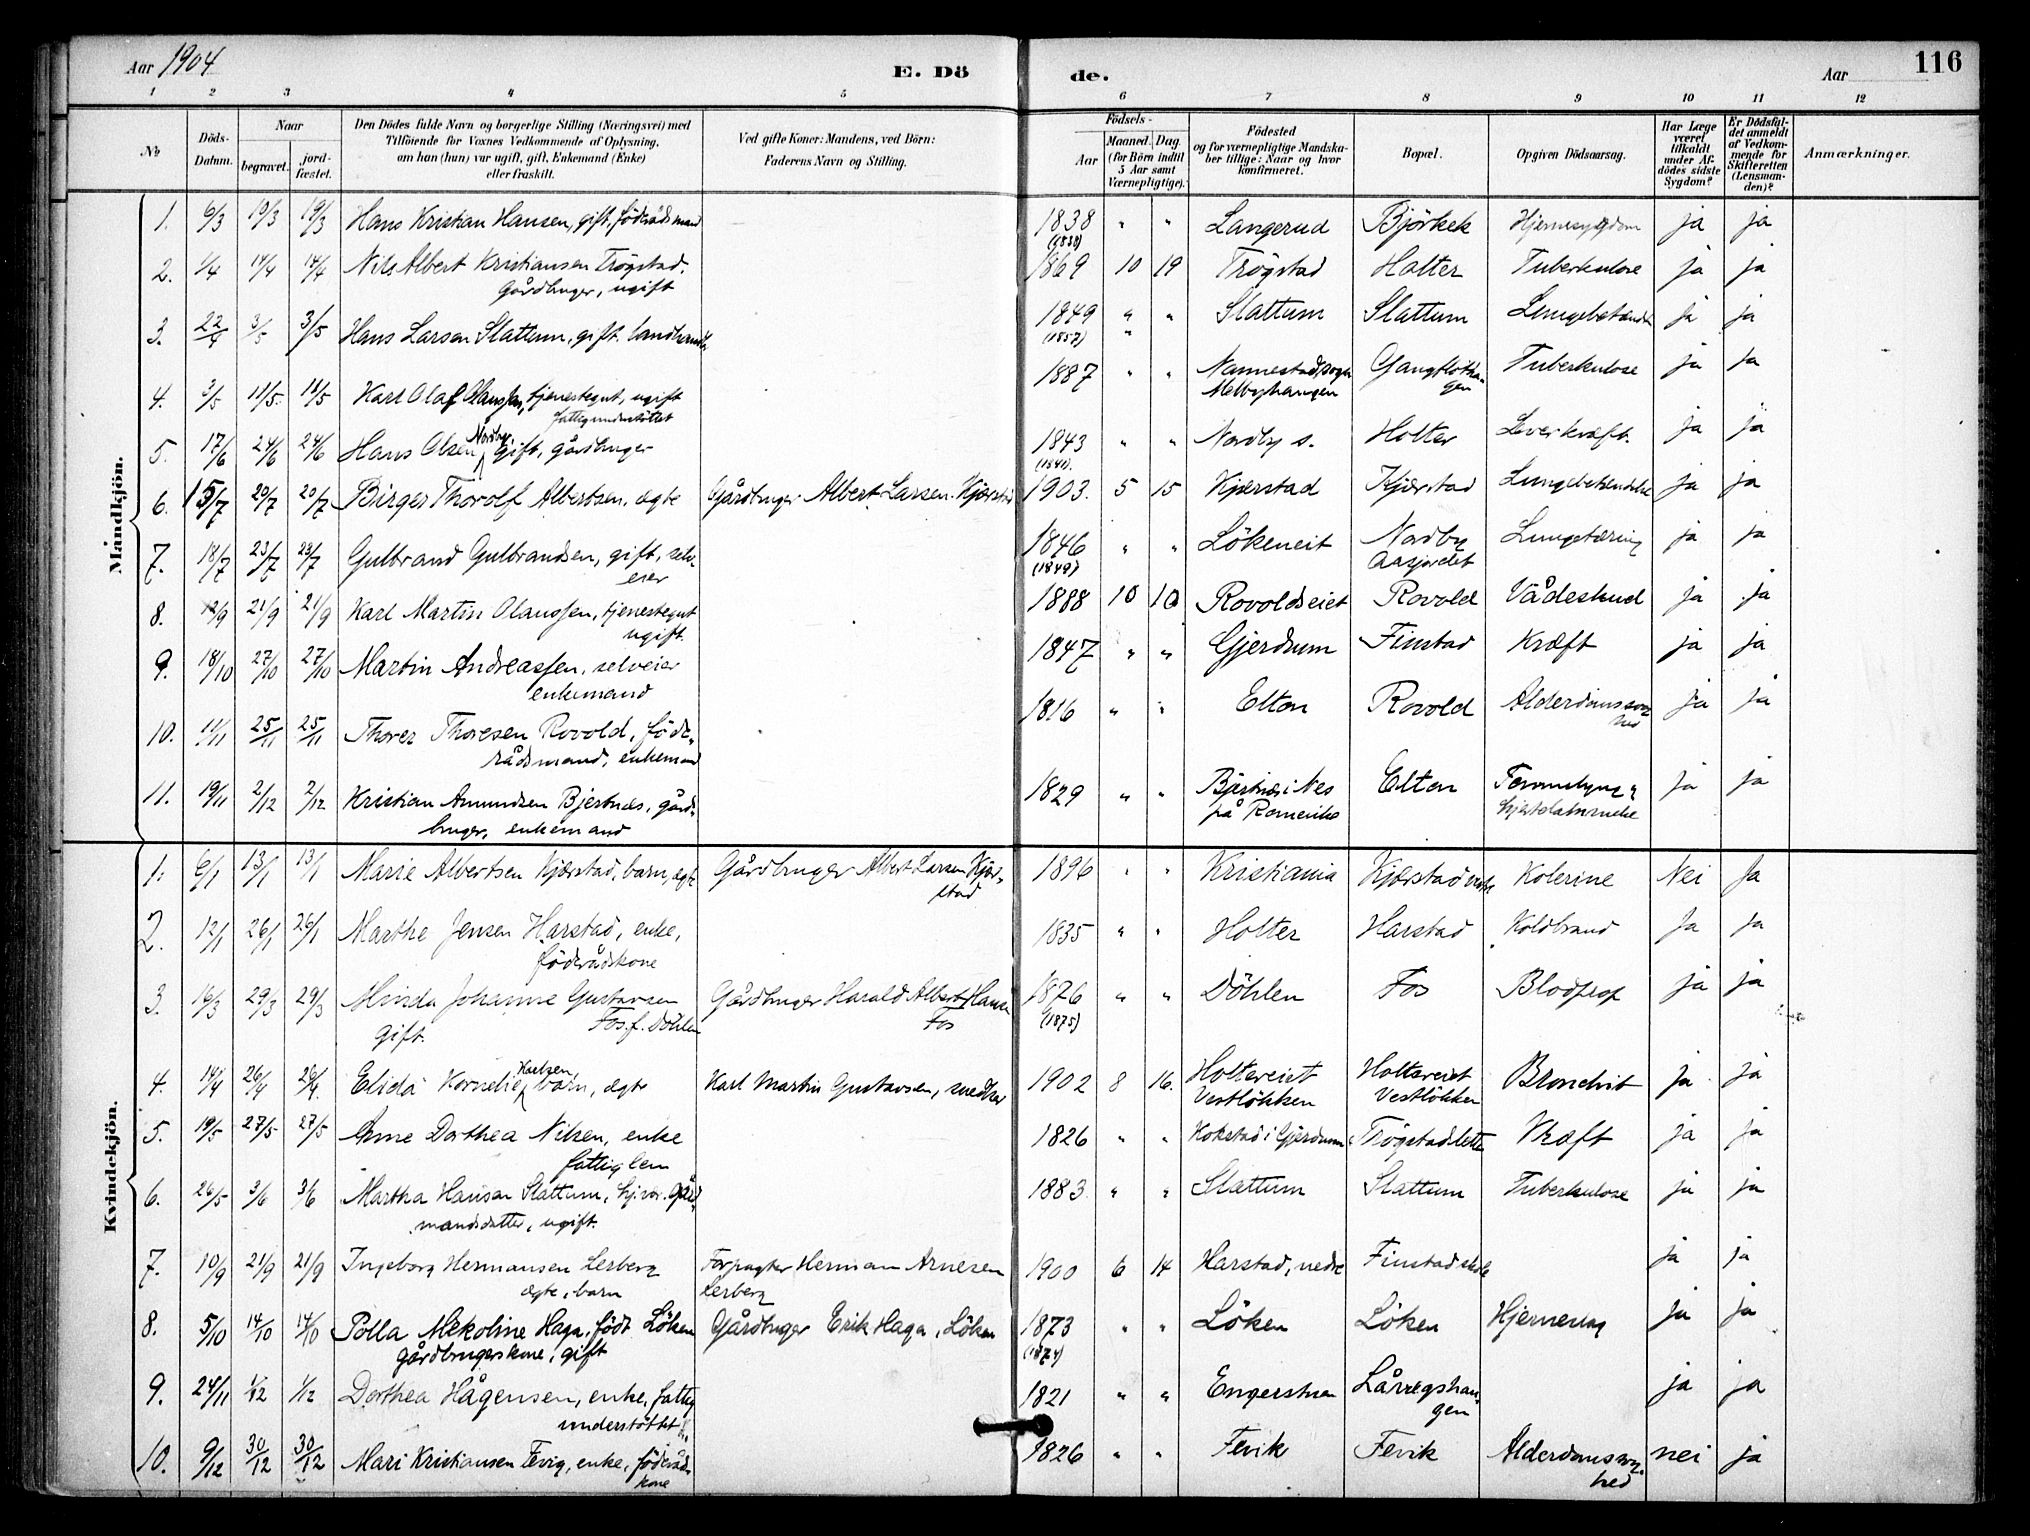 Aar 1904 E. Dö de. Aar 116
1 2 3 4 5 6 7 8 9 10 11 12
No Döds-Datum. Naar begravet. jord-fæstet. Den Dödes fulde Navn og borgerlige Stilling (Næringsvei) med Tilföiende for Voxnes Vedkommende af Oplysning, om han (hun) var ugift, gift, Enkemand (Enke) eller fraskilt. Ved gifte Koner: Mandens, ved Börn: Faderens Navn og Stilling. Födsels- Aar Maaned. Dag. (for Börn indtil 5 Aar samt Værnepligtige). Födested og for værnepligtige Mandskaber tillige: Naar og hvor konfirmeret. Bopæl. Opgiven Dödsaarsag. Har Læge været tilkaldt under Afdödes sidste Sygdom? Er Dödsfaldet anmeldt af Vedkommende for Skifteretten (Lensmanden)? Anmærkninger.
Mandkjön.
1. 6/3 19/3 19/3 Hans Kristian Hansen, gift, föderådsmand 1838 " " Langerud Björkek Hjernesygdom ja ja
(1838)
2. 1/4 14/4 14/4 Nils Albert Kristiansen Trögstad, 1869 10 19 Trögstad Holter Tuberkulose ja ja
Gårdbruger, ugift
3. 22/4 3/5 3/5 Hans Larsen Slattum, gift. 1849 " " Slattum Slattum ja ja
(1857)
4. 3/5 11/5 11/5 Karl Olaf Olaussen, tjenestegut, ugift 1887 " " Nannestad sogn Tuberkulose ja ja
fattigunderstöttet Melbyhaugen
5. 17/6 24/6 24/6 Hans Olsen Nordby, gift, gårdbruger 1843 " " Nordby s. Holter Leverkræft. ja ja
(1841).
6. 15/7 20/7 20/7 Birger Thorolf Albertsen, ægte Gårdbruger Albert Larsen Kjærstad 1903. 5 15 Kjærstad Kjærstad Lungebetændelse ja ja
7. 18/7 23/7 23/7 Gulbrand Gulbrandsen, gift, selv- 1846 " " Lökeneit Nordby Lungetæring ja ja
eier (1849) Aasjordet
8. 12/9 21/9 21/9 Karl Martin Olaussen, tjenestegut 1888 10 10 Rovoldseiet Rovold Vådeskud ja ja
ugift.
9. 18/10 27/10 27/10 Martin Andreassen, selveier 1847 " " Gjerdrum Finstad Kræft ja ja
enkemand
10. 11/11 25/11 25/11 Thorer Thoresen Rovold, föde- 1816 " " Elton Rovold Alderdomssvag- ja ja
rådsmand, enkemand hed
11. 19/11 2/12 2/12 Kristian Amundsen Bjertnæs, gård- 1829 " " Bjertnæs i Nes Elton ja ja
bruger, enkemand på Romerike
Kvindekjön.
1. 6/1 13/1 13/1 Marie Albertsen Kjærstad, barn, ægte Gårdbruger Albert Larsen Kjær- 1896 " " Kristiania Kjærstad Kolerine Nei Ja
stad
2. 12/1 26/1 26/1 Marthe Jensen Harstad, enke, 1835 " " Holter Harstad Koldbrand Ja Ja
föderådskone
3. 16/3 29/3 29/3 Minda Johanne Gustavsen Gårdbruger Harald Albert Hansen 1876 " " Döhlen Fos Blodprop ja ja
gift. Fos. f. Döhlen Fos (1875)
4. 14/4 26/4 26/4 Elida Kornelie Karlsen, barn, ægte Karl Martin Gustavsen, snedker 1902 8 16. Holtereiet Holtereiet Bronchit ja ja
Vestlökken Vestlökken
5. 19/5 27/5 27/5 Anne Dorthea Nilsen, enke 1826 " " Kokstad i Gjerdrum Trögstadsletten Kræft ja ja
fattiglem
6. 26/5 3/6 3/6 Martha Hansen Slattum, hjvær. Gård- 1883 " " Slattum Slattum Tuberkulose ja ja
mandsdatter, ugift.
7. 10/9 21/9 21/9 Ingeborg Hermansen Lerberg Forpagter Herman Arnesen 1900 6 14 Harstad, nedre Finstad ja ja
ægte, barn Lerberg
8. 5/10 14/10 14/10 Polla Nikoline Haga, född Löken Gårdbruger Erik Haga, Löken 1873 " " Löken Löken Hjerneslag ja ja
gårdbrugerskone, gift (1874)
9. 24/11 1/12 1/12 Dorthea Hågensen, enke, fattig 1821 " " ja ja
understöttet gen
10. 9/12 30/12 30/12 Mari Kristiansen Fevig, enke, föderåds 1826 " " Fevik Fevik Alderdomssvag- nei ja
kone hed